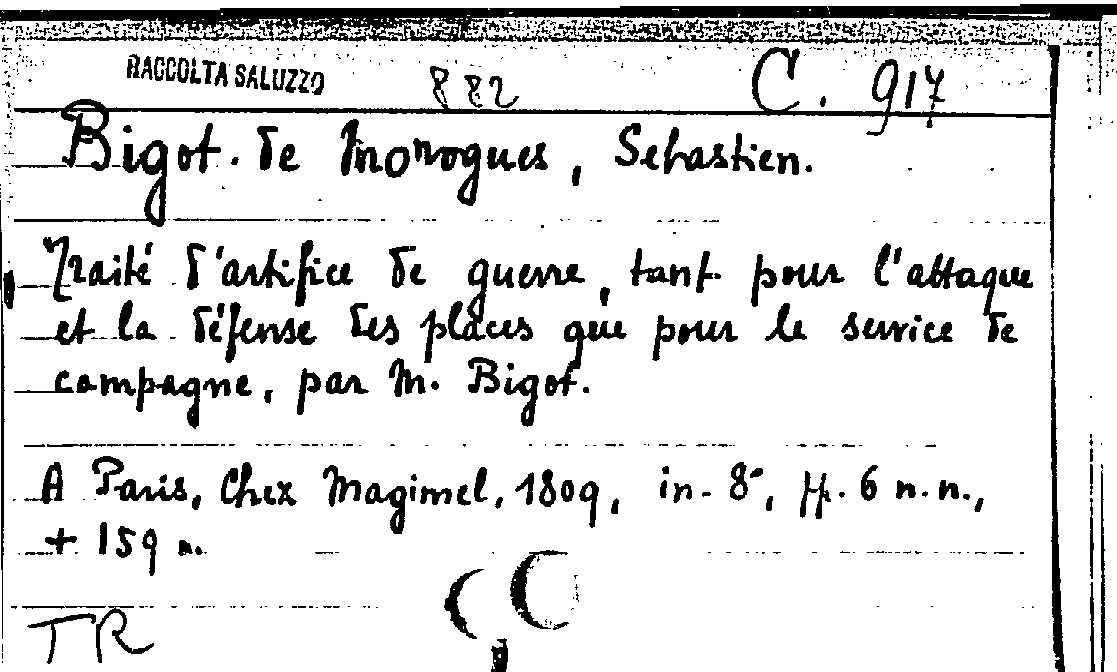 RACCOLTA SALUZZO 882 C. 917
Bigot. de Morogues, Sebastien.
Traité d'artifice de guerre, tant pour l'attaque
et la défense des places que pour le service de
campagne, par M. Bigot.
A Paris, Chez Magimel, 1809, in-8°, pp. 6 n.n.,
+ 159 n.
TR